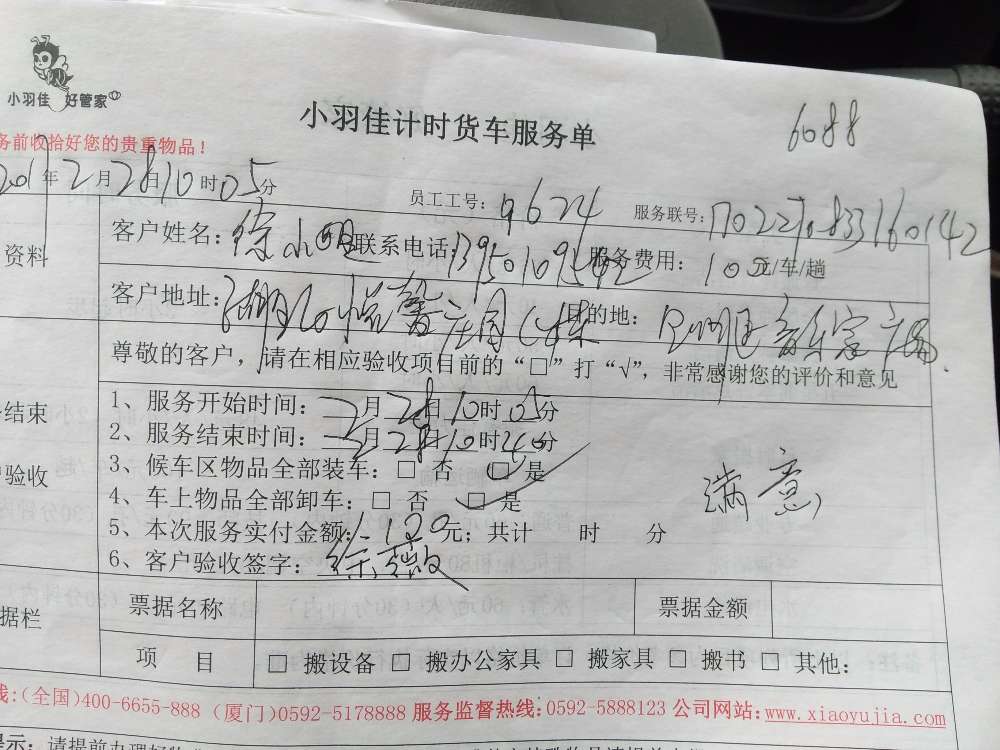 小羽佳 好管家
小羽佳计时货车服务单
6088
务前收拾好您的贵重物品!
年2月28日10时05分
员工工号: 9624
服务联号:
资料
客户姓名: 徐小姐 联系电话:
服务费用: 10元/车/趟
客户地址:
目的地:
尊敬的客户, 请在相应验收项目前的“□”打“√”, 非常感谢您的评价和意见
结束
验收
1、服务开始时间: 2月28日10时05分
2、服务结束时间: 2月28日10时40分
3、候车区物品全部装车: □ 否 □ 是
4、车上物品全部卸车: □ 否 □ 是
满意
5、本次服务实付金额: 120元; 共计 时 分
6、客户验收签字: 徐薇
据栏
票据名称
票据金额
项 目
□ 搬设备 □ 搬办公家具 □ 搬家具 □ 搬书 □ 其他:
线:(全国)400-6655-888 (厦门)0592-5178888 服务监督热线:0592-5888123 公司网站:www.xiaoyujia.com